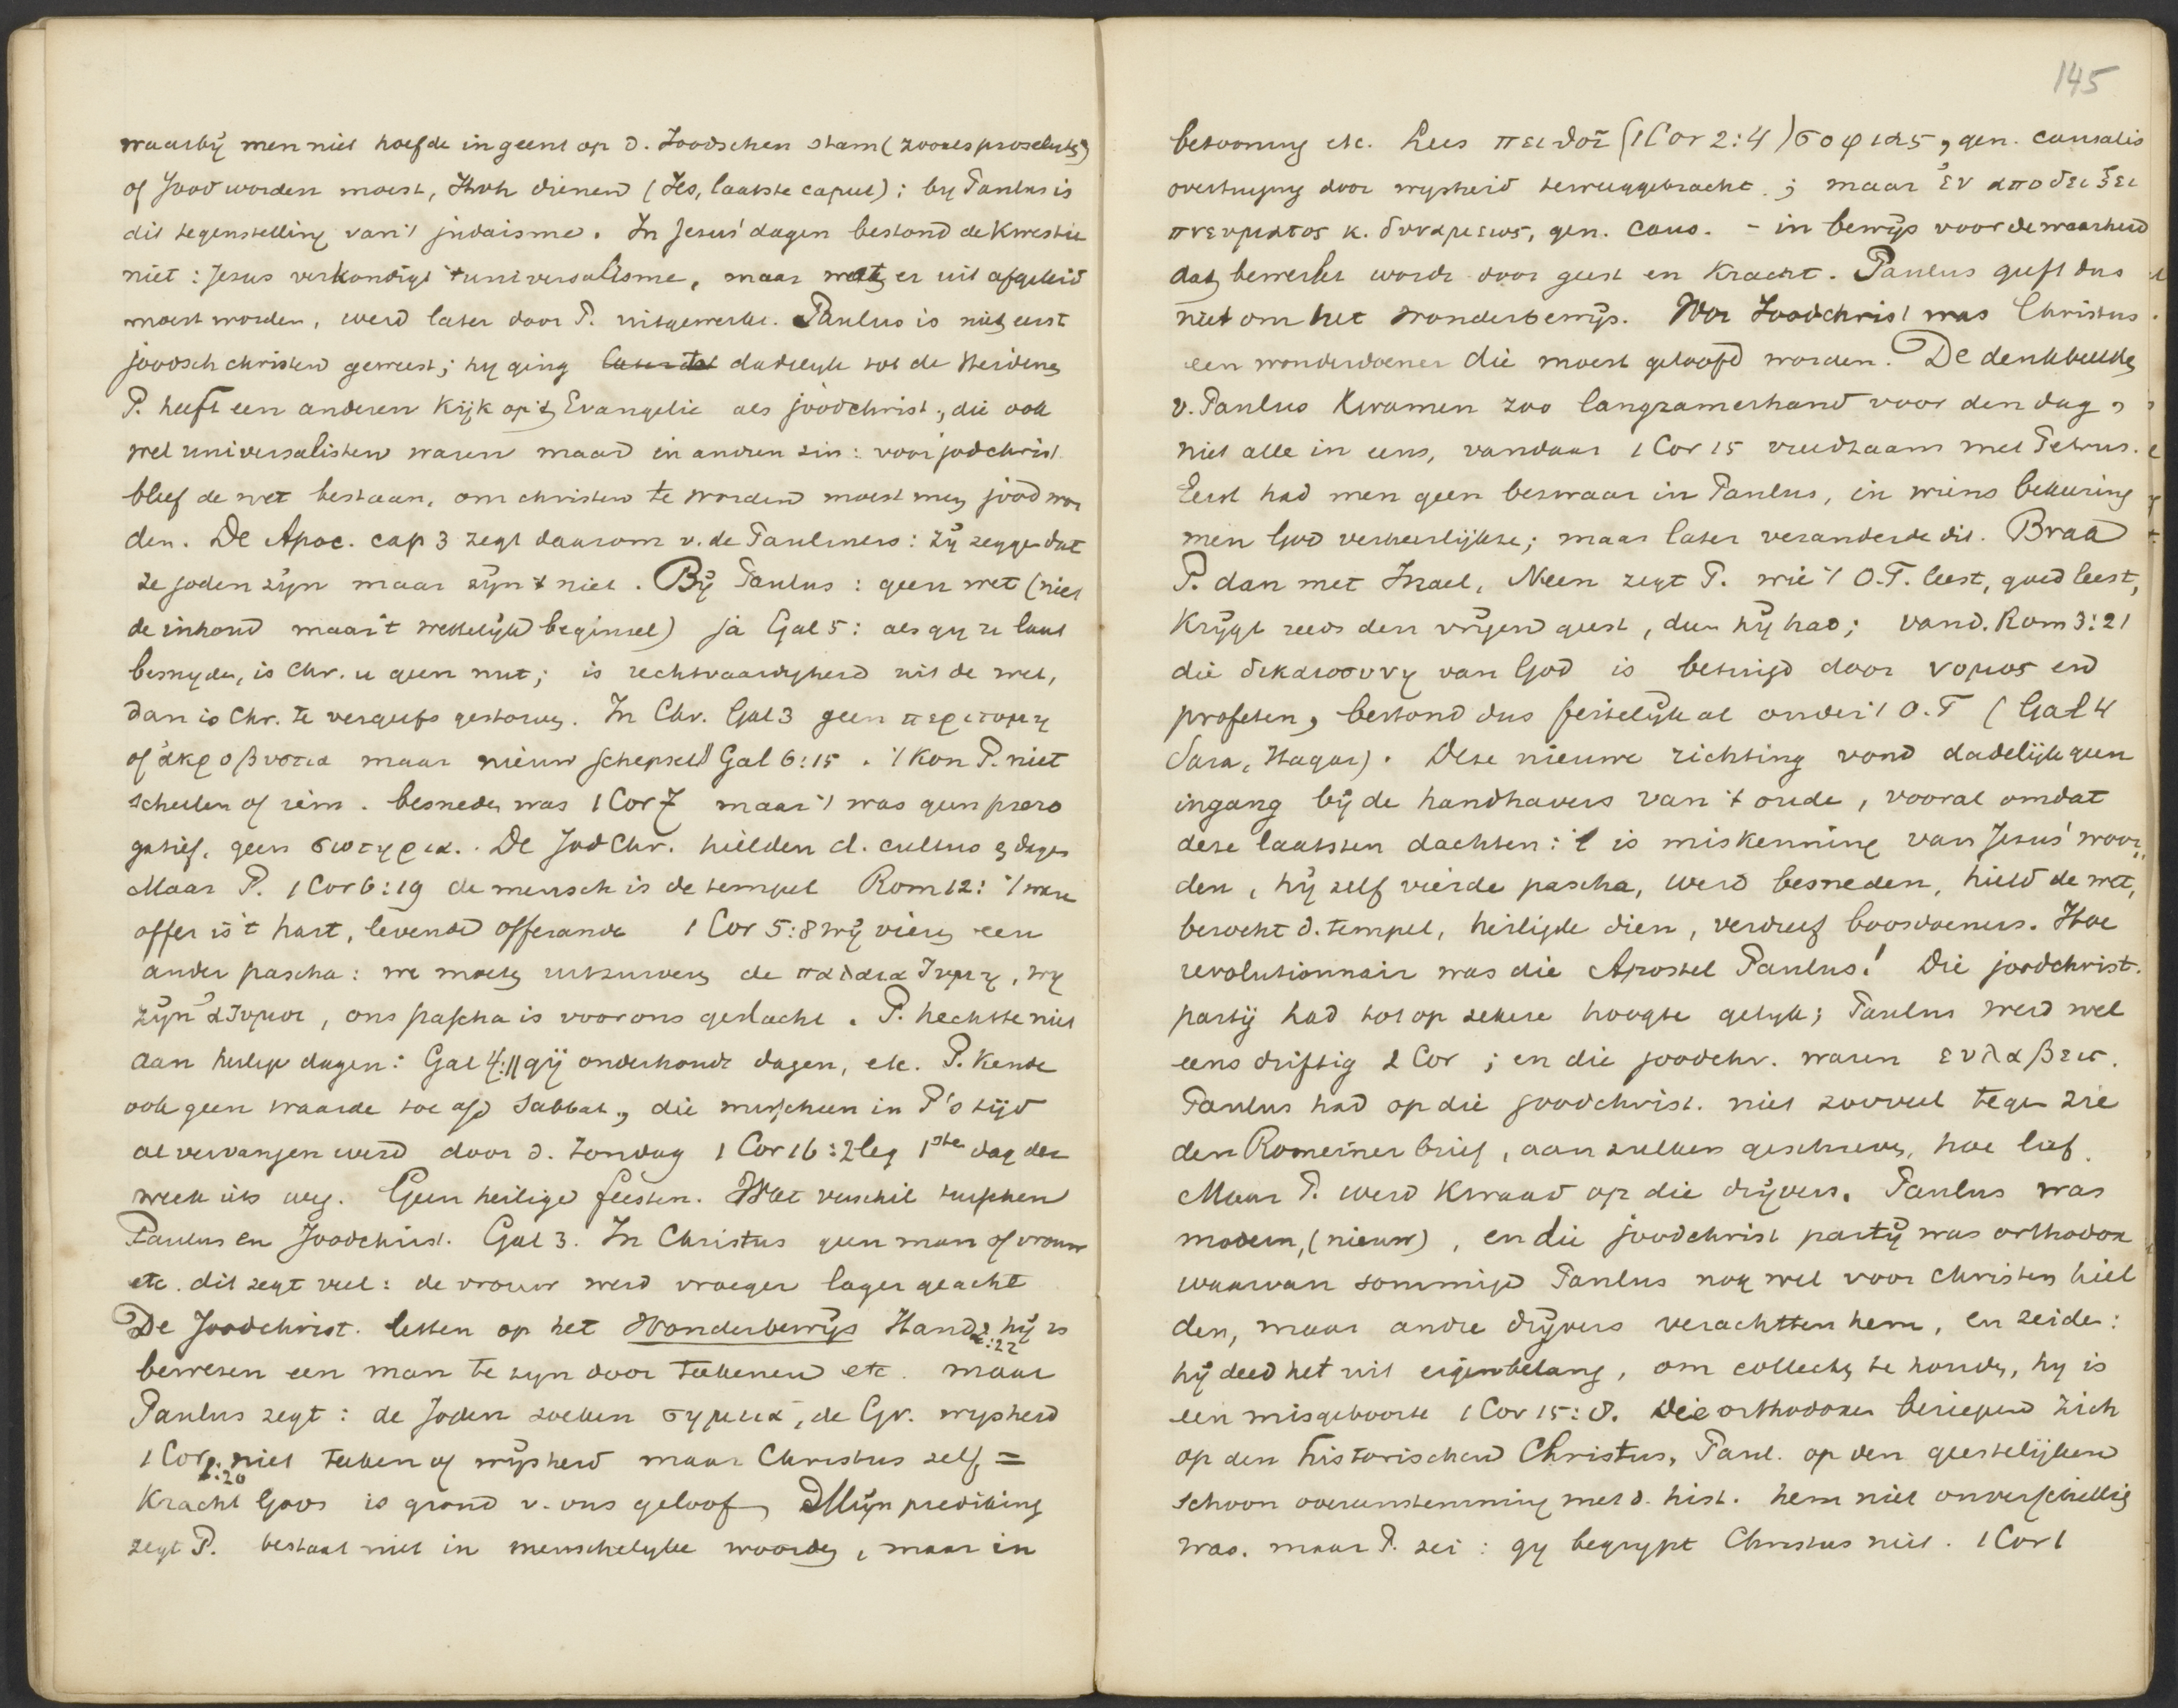 waarbij men niet hoefde ingeent op d. Joodschen stam (zooals proselyten)
of Jood worden moest, Jhvh dienen (Jes, laatste caput); by Paulus is
dit tegenstelling van 't judaisme. In Jesus' dagen bestond de kwestie
niet: Jesus verkondigt 't universalisme, maar wat er uit afgeleid
moest worden, werd later door P. uitgewerkt. Paulus is niet eerst
joodsch christen geweest; hy ging dadelyk tot de Heidenen
P. heeft een anderen kijk op 't Evangelie als joodchrist., die ook
wel universalisten waren maar in andren zin: voor jodchrist
bleef de wet bestaan, om christen te worden moest men jood wor
den. De Apoc. cap 3 zegt daarom v. de Pauliners: zy zeggen dat
ze joden zijn maar zijn 't niet. Bij Paulus: geen wet (niet
de inhoud maar 't wettelijk beginsel) ja Gal 5: als gy u laat
besnyden, is Chr. u geen nut; is rechtvaardigheid uit de wet,
dan is Chr. te vergeefs gestorven. In Chr. Gal 3 geen περιτομη
of ἀκροβυστια maar nieuw schepsel Gal 6:15. 't kon P. niet
schelen of iem. besneden was 1 Cor 7 maar 't was geen prero
gatief, geen σωτηρια. De JodChr. hielden d. cultus & dagen
Maar P. 1 Cor 6:19 de mensch is de tempel Rom 12: 't ware
offer is 't hart, levende offerande 1 Cor 5:8 wij vieren een
ander pascha: we moeten uitzuiveren de παλαια ζυμη, wy
zijn ἀζυμοι, ons pascha is voor ons geslacht. P. hechtte niet
aan heilige dagen: Gal 4:11 gij onderhoudt dagen, etc. P. kende
ook geen waarde toe a/d Sabbat, die misschien in P's tijd
al vervangen werd door d. Zondag 1 Cor 16:2 leg 1ste dag der
week iets weg. Geen heilige feesten. Wat verschil tusschen
Paulus en Joodchrist. Gal 3. In Christus geen man of vrouw
etc. dit zegt veel: de vrouw werd vroeger lager geacht
De Joodchrist. letten op het Wonderbewijs Hand 2:22 hij is
bewezen een man te zyn door teekenen etc. maar
Paulus zegt: de Joden zoeken σημεια, de Gr. wysheid
1 Cor 1:20 niet teeken of wijsheid maar Christus zelf =
kracht Gods is grond v. ons geloof, Mijn prediking
zegt P. bestaat niet in menschelyke woorden, maar in
145
betooning etc. Lees πειθοῖ (1 Cor 2:4) σοφιας, gen. causalis
overtuiging door wysheid teweeggebracht; maar ἐν αποδειξει
πνευματος κ. δυναμεως, gen. caus. - in bewijs voor de waarheid
dat bewerkt wordt door geest en kracht. Paulus geeft dus
niet om het wonderbewijs. Voor Joodchrist was Christus
een wonderdoener die moest geloofd worden. De denkbeelden
v. Paulus kwamen zoo langzamerhand voor den dag,
niet alle in eens, vandaar 1 Cor 15 vreedzaam met Petrus.
Eerst had men geen bezwaar in Paulus, in wiens bekeering
men God verheerlijkte; maar later veranderde dit. Brak
P. dan met Israel, Neen zegt P. wie 't O.T. leest, goed leest,
krijgt reeds den vrijen geest, dien hij had; vand. Rom 3:21
die δικαιοσυνη van God is betuigd door νομος en
profeten, bestond dus feitelijk al onder 't O.T (Gal 4
Sara, Hagar). Deze nieuwe richting vond dadelijk geen
ingang bij de handhavers van 't oude, vooral omdat
deze laatsten dachten: 't is miskenning van Jesus' woor„
den, hij zelf vierde pascha, werd besneden, hield de wet,
bezocht d. tempel, heiligde dien, verdreef boosdoeners. Hoe
revolutionnair was die Apostel Paulus! Die joodchrist.
partij had tot op zekere hoogte gelijk; Paulus werd wel
eens driftig 2 Cor ; en die joodchr. waren ευλαβεις.
Paulus had op die joodchrist. niet zooveel tegen zie
den Romeinerbrief, aan zulken geschreven, hoe lief.
Maar P. werd kwaad op die drijvers. Paulus was
modern, (nieuw), en die joodchrist partij was orthodox
waarvan sommige Paulus nog wel voor christen hiel
den, maar andre drijvers verachtten hem, en zeiden:
hij deed het uit eigenbelang, om collecten te houden, hy is
een misgeboorte 1 Cor 15:8. Die orthodoxen beriepen zich
op den historischen Christus, Paul. op den geestelijken
schoon overeenstemming met d. hist. hem niet onverschillig
was. maar P. zei: gy begrypt Christus niet. 1 Cor 1